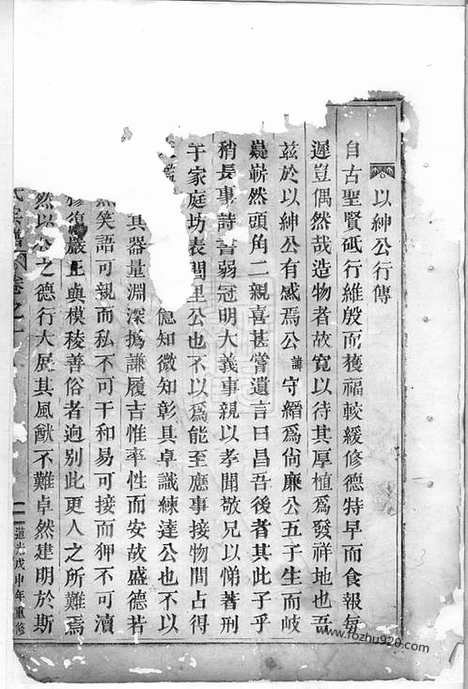 以紳公行傳
自古聖賢砥行維殷而獲福較緩修德特早而食報每
遲豈偶然哉造物者故寬以待其厚植爲發祥地也吾
茲於以紳公有感焉公諱守縉爲尙廉公五子生而岐
嶷嶄然頭角二親喜甚嘗遺言曰昌吾後者其此子乎
稍長事詩書弱冠明大義事親以孝聞敬兄以悌著刑
于家庭坊表閭里公也不以爲能至應事接物間占得
億知微知彰具卓識練達公也不以
其器量淵深撝謙履吉惟率性而安故盛德若
然笑語可親而私不可干和易可接而狎不可瀆
修復嚴正與模稜善俗者迥別此更人之所難焉
然以公之德行大展其風猷不難卓然建明於斯
氏宗譜 卷之一 二 道光戊申年重修
www.fozhu920.com